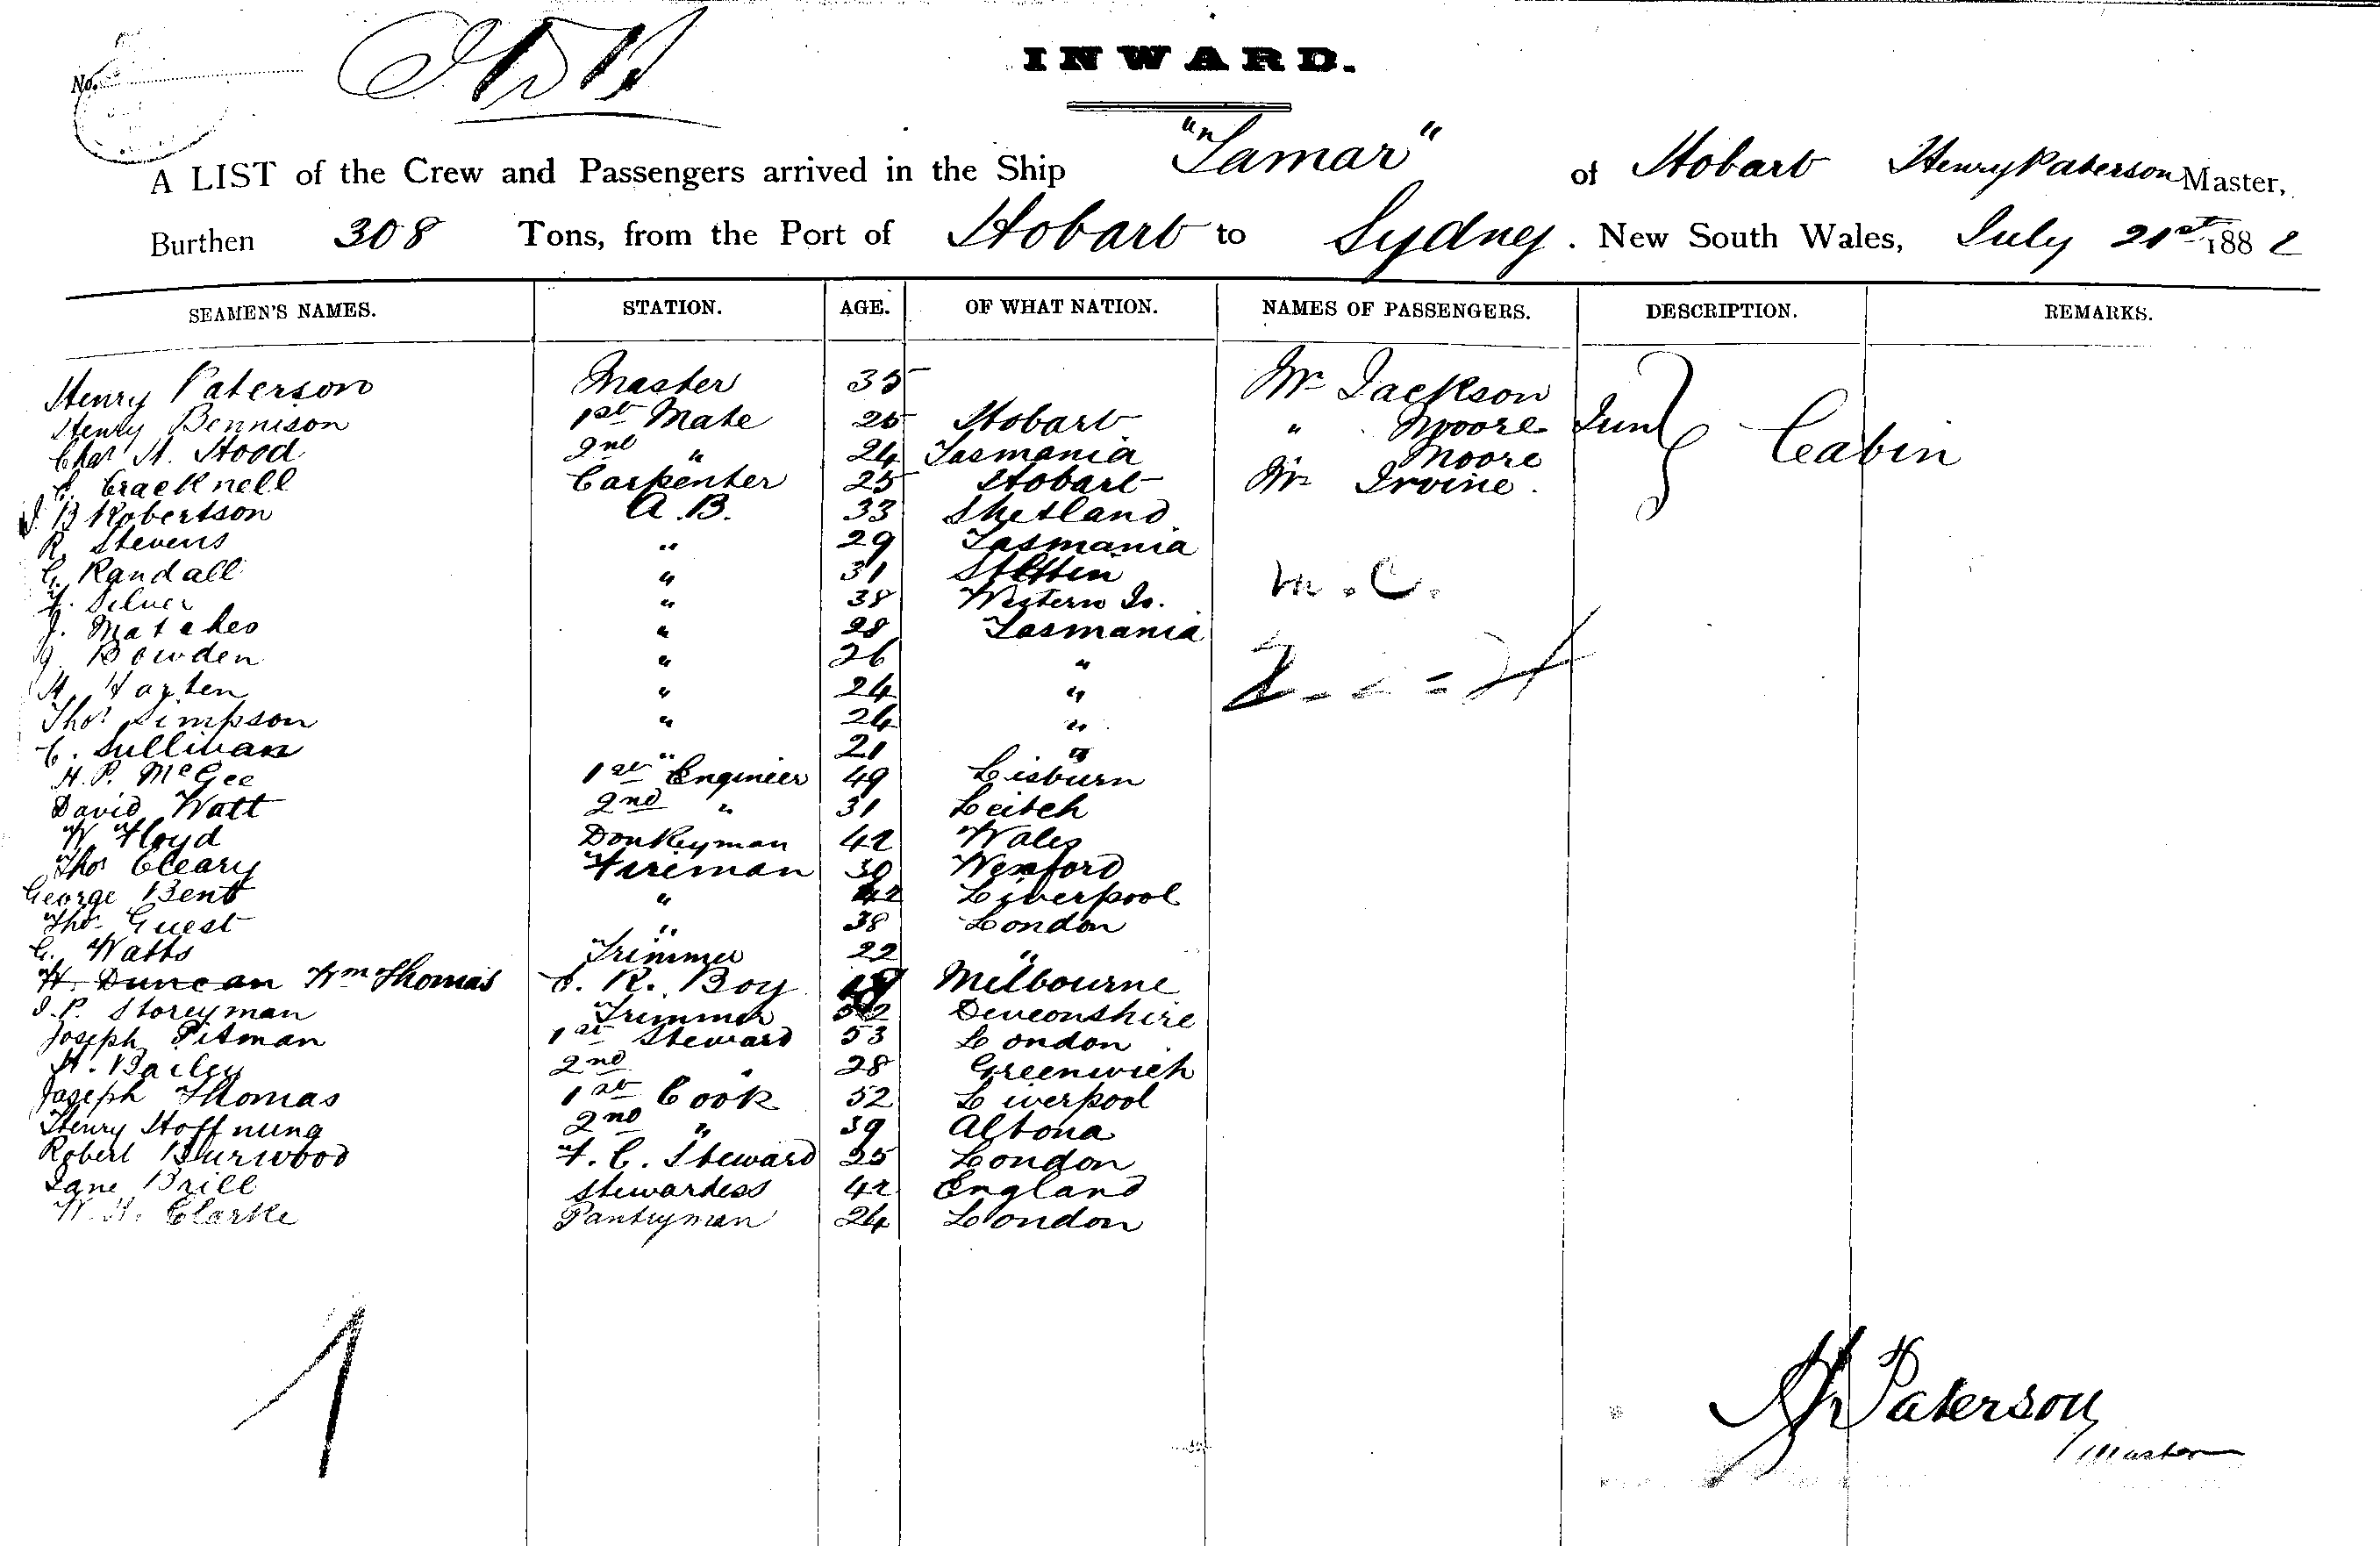 INWARD.
No.
A LIST of the Crew and Passengers arrived in the Ship "Tamar" of Hobart Henry Paterson Master,
Burthen 308 Tons, from the Port of Hobart to Sydney. New South Wales, July 21st 1882
SEAMEN'S NAMES. STATION. AGE. OF WHAT NATION. NAMES OF PASSENGERS. DESCRIPTION. REMARKS.
Henry Paterson Master 35 Mr Jackson
Henry Bennison 1st Mate 25 Hobart " Moore Junr Cabin
Chas H. Hood 2nd " 24 Tasmania Moore
C. Cracknell Carpenter 25 Hobart Mr Irvine.
J. B Robertson A.B. 33 Shetland
R. Stevens " 29 Tasmania
G. Randall " 31 Stettin m.C.
F. Silver " 38 Western Is.
J. " 28 Tasmania
J. Bowden " 26 "
H. " 24 "
Thos Simpson " 24 "
C. Sullivan " 21 "
H. P. McGee 1st Engineer 49 Lisburn
David Watt 2nd " 31 Leitch
W. Floyd Donkeyman 42 Wales
Thos Cleary Fireman 30 Wexford
George Bent " 42 Liverpool
Thos Guest " 38 London
G. Watts Trimmer 22 "
H. Duncan Wm Thomas F. R. Boy Melbourne
J. P. Storeyman Trimmer Deveonshire
Joseph Pitman 1st Steward 53 London
H. Bailey 2nd " 28 Greenwich
Joseph Thomas 1st Cook 52 Liverpool
Henry Hoffnung 2nd " 39 Altona
Robert Burwood F. C. Steward 25 London
Jane Brill Stewardess 42 England
W. H. Clarke Pantryman 24 London
H Paterson
Master